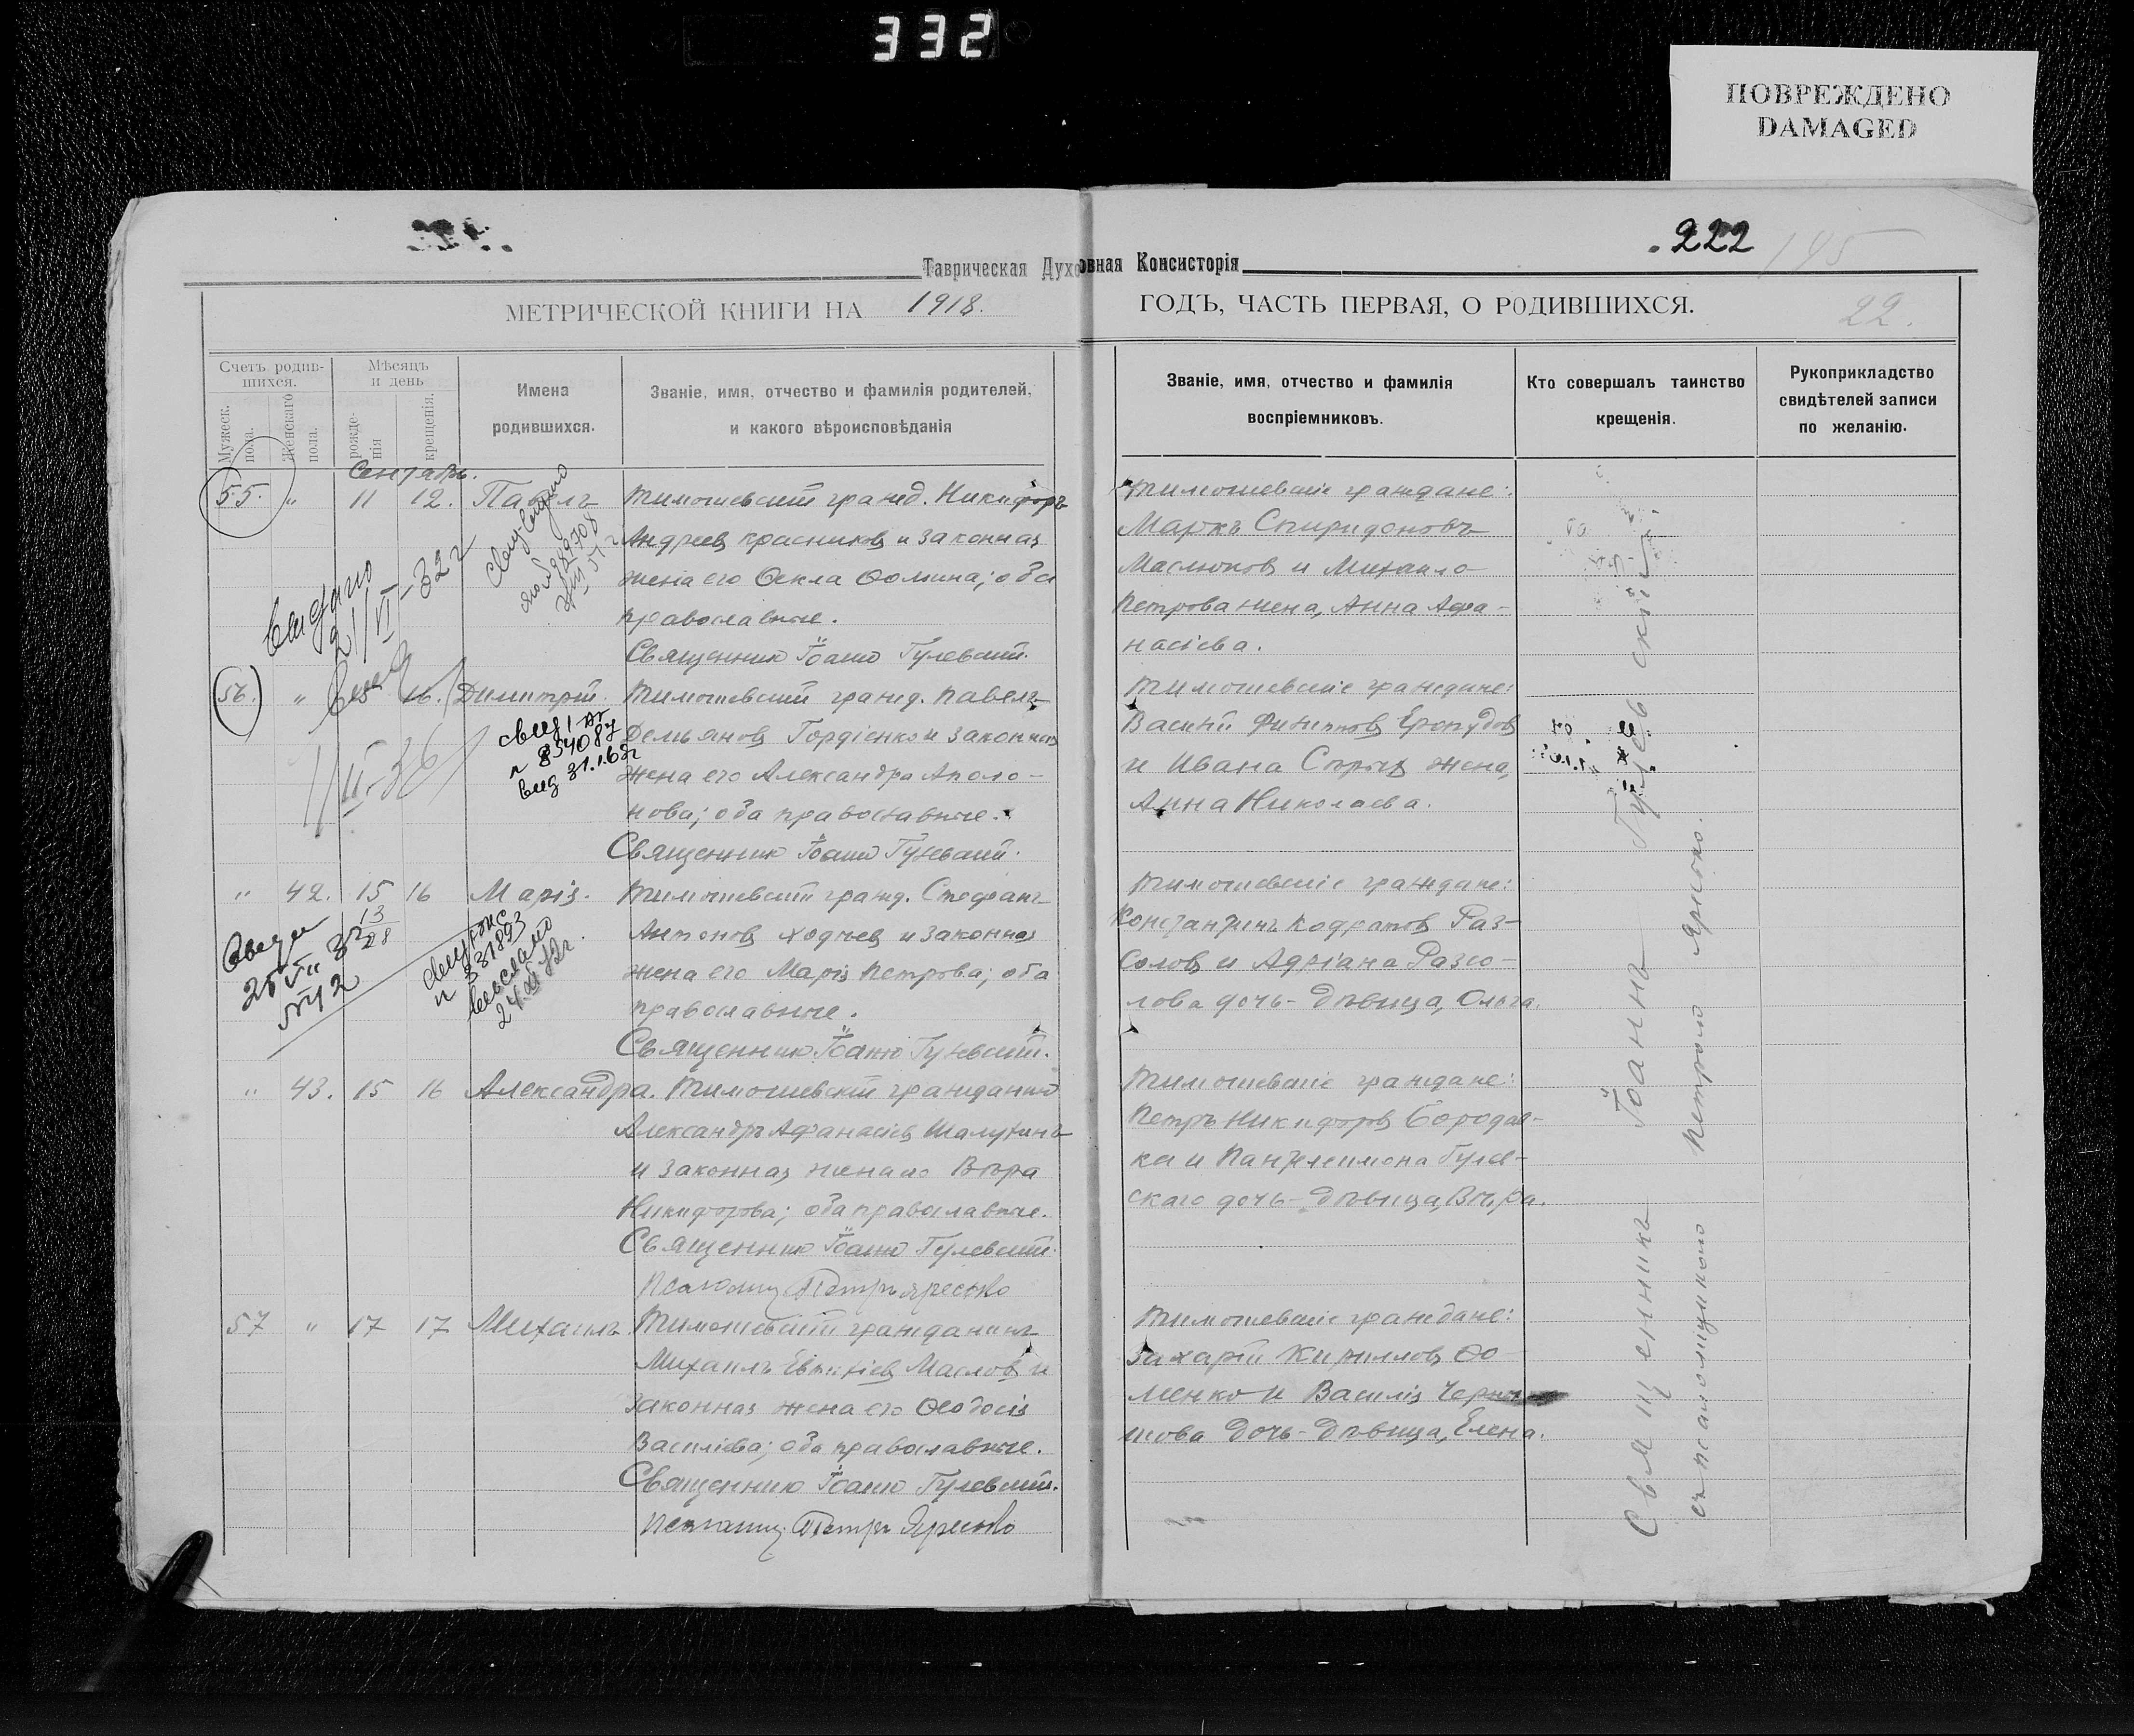 332
ПОВРЕЖДЕНО
DAMAGED
.222
195
Таврическая Духовная Консисторія
МЕТРИЧЕСКОЙ КНИГИ НА 1918. ГОДЪ, ЧАСТЬ ПЕРВАЯ, О РОДИВШИХСЯ.
22.
Счетъ родив-
шихся.
Мужеск.
пола.
Женскаго
пола.
Мѣсяцъ
и день
рожде-
нія
крещенія.
Имена
родившихся.
Званіе, имя, отчество и фамилія родителей,
и какого вѣроисповѣданія
Званіе, имя, отчество и фамилія
воспріемниковъ.
Кто совершалъ таинство
крещенія.
Рукоприкладство
свидѣтелей записи
по желанію.
Сентябрь.
55. " 11 12. Павелъ
Тимошевскій гражд. Никифоръ
Андреев Красников и законная
жена его Ѳекла Ѳомина; оба
православные.
Священник Іоанн Гулевскій.
Тимошевскіе граждане:
Маркъ Спиридоновъ
Маслюков и Михаила
Петрова жена, Анна Афа-
насіева.
21/VI-32 г
56. " 16. Димитрій.
Тимошевскій гражд. Павелъ
Демьянов Гордіенко и законная
жена его Александра Аполо-
нова; оба православные.
Священник Іоанн Гулевскій.
1/II-36
n 854087
выд 31.1.63г
Тимошевскіе граждане:
Василій Филиппов
и Ивана жена,
Анна Николаева.
" 42. 15 16 Марія.
Тимошевскій гражд. Стефанъ
Антонов Ходчев и законная
жена его Марія Петрова; оба
православные.
Священник Іоанн Гулевскій.
n 331893
выслано
Тимошевскіе граждане:
Константинъ Кодратов Раз-
солов и Адріана Разсо-
лова дочь-дѣвица, Ольга.
" 43. 15 16 Александра.
Тимошевскій гражданин
Александръ Афанасіев Шалухинъ
и законная жена его Вѣра
Никифорова; оба православные.
Священник Іоанн Гулевскій.
Псаломщ. Петръ Яресько
Тимошевскіе граждане:
Петръ Никифоров Бородав-
ка и Пантелеимона Гулев-
скаго дочь-дѣвица, Вѣра.
57 " 17 17 Михаилъ.
Тимошевскій гражданинъ
Михаилъ Евтихіев Маслов и
законная жена его Ѳеодосія
Василіева; оба православные.
Священник Іоанн Гулевскій.
Псаломщ. Петръ Яресько
Тимошевскіе граждане:
Захарій Кириллов Ѳо-
менко и Василія
дочь-дѣвица, Елена.
Священникъ Іоаннъ Гулевскій
съ псаломщиком Петром Яресько.